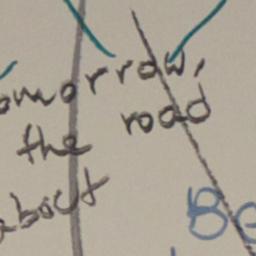 omorrow,
the road
about
Be